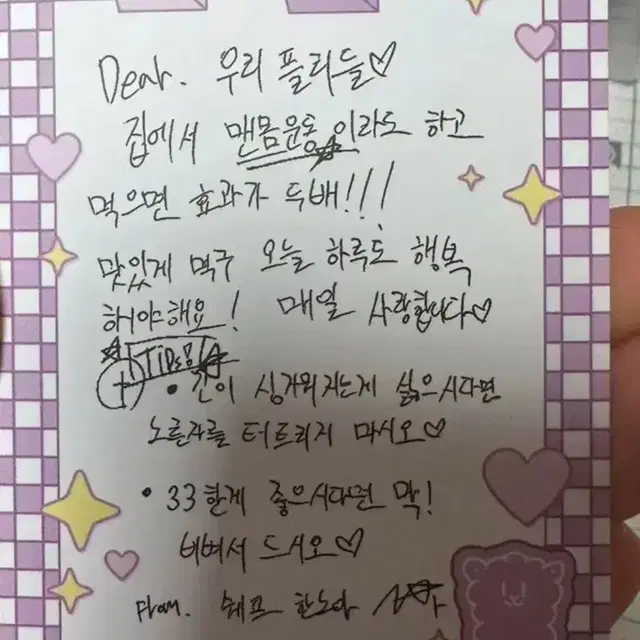 Dear. 우리 플리들♡
집에서 맨몸운동이라도 하고
먹으면 효과가 두배!!!
맛있게 먹구 오늘 하루도 행복
해야해요! 매일 사랑합니다♡
☆TIPS☆
• 간이 싱거워지는게 싫으시다면
노른자를 터트리지 마시오♡
• 33한게 좋으시다면 막!
비벼서 드시오♡
From. 쉐프 한노아